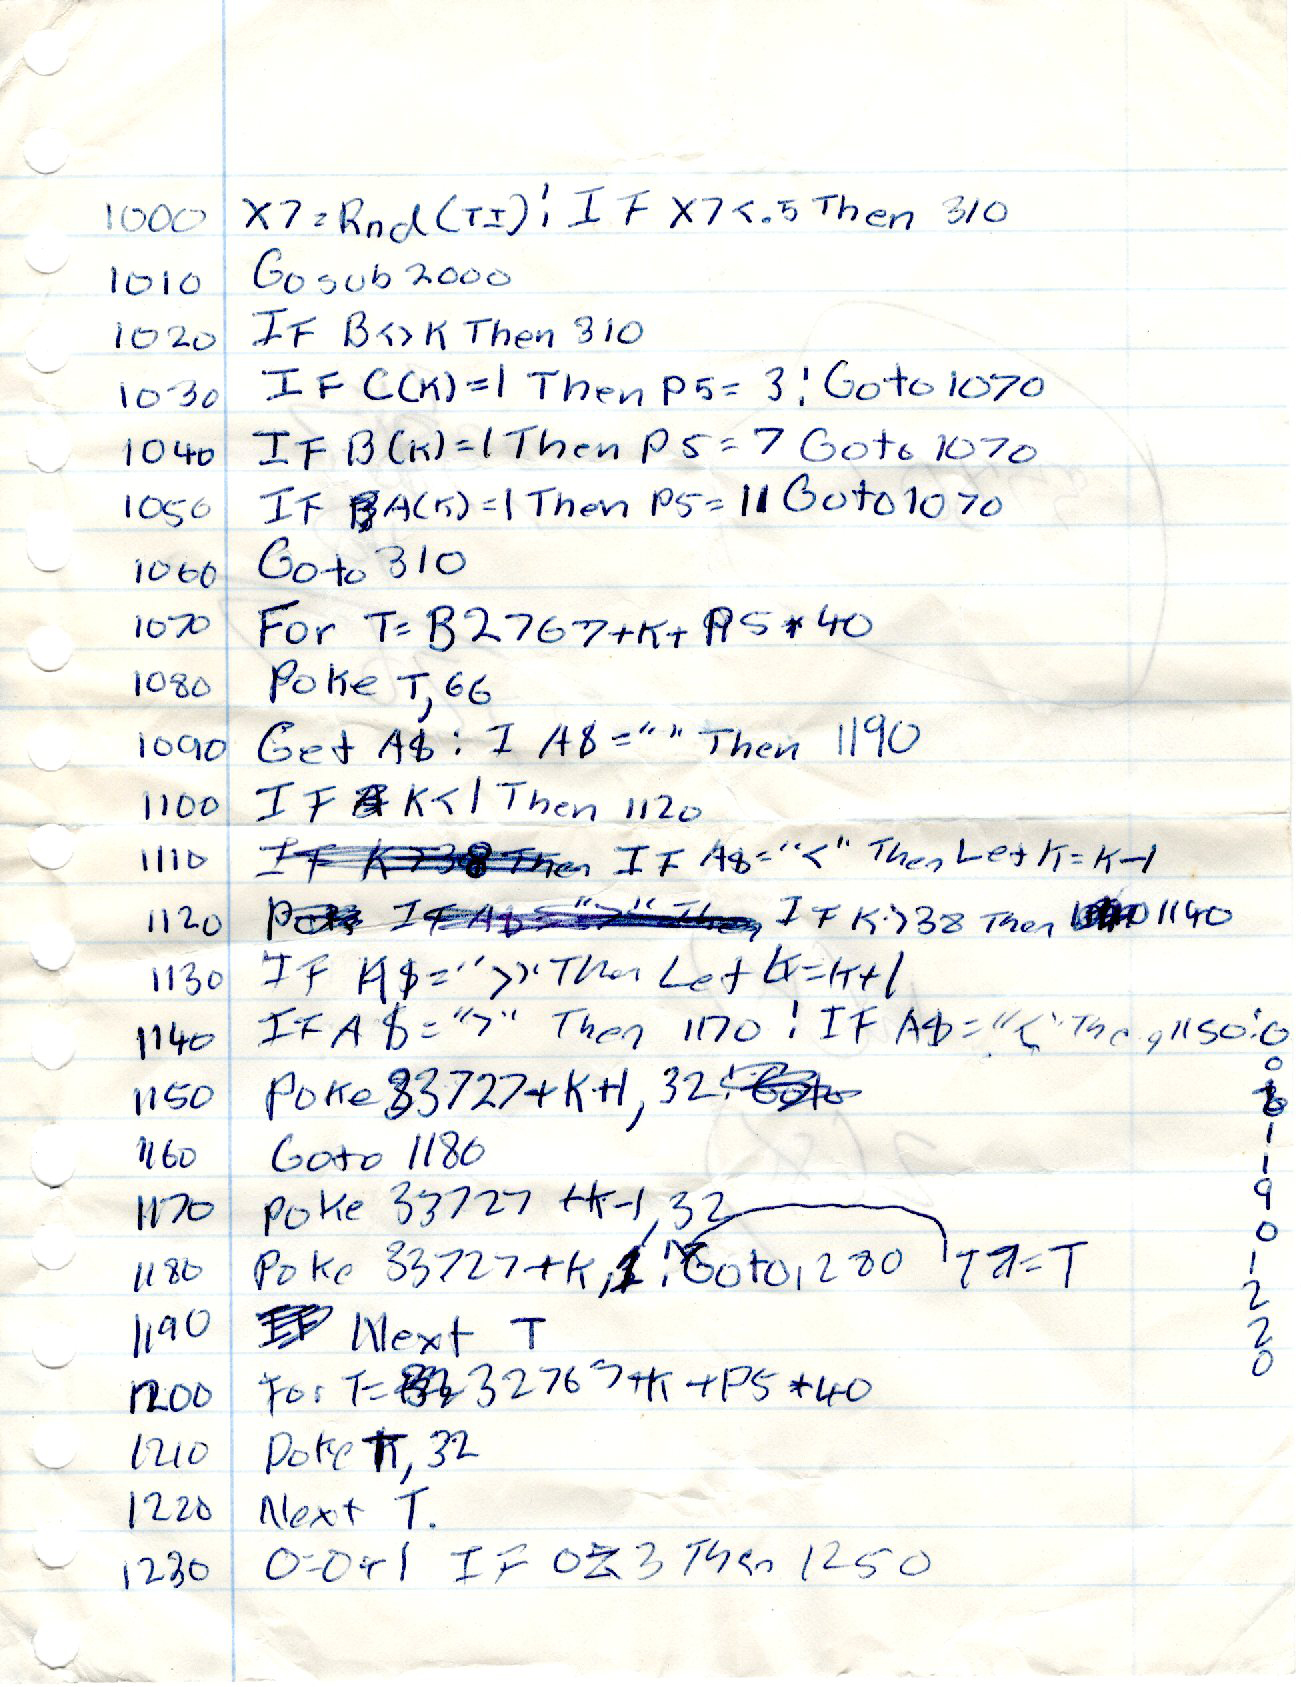 1000 X7=Rnd(TI): IF X7<.5 Then 310
1010 Gosub 2000
1020 IF B<>K Then 310
1030 IF C(K)=1 Then P5=3: Goto 1070
1040 IF B(K)=1 Then P5=7 Goto 1070
1050 IF A(K)=1 Then P5=11 Goto 1070
1060 Goto 310
1070 For T=B2767+K+P5*40
1080 Poke T,66
1090 Get A$: I A$="" Then 1190
1100 IF K<1 Then 1120
1110 IF K>38 Then IF A$="<" Then Let K=K-1
1120 IF A$=">" Then IF K>38 Then 1140
1130 IF A$=">" Then Let K=K+1
1140 IF A$=">" Then 1170: IF A$="<" Then 1150:Goto 1190
1150 Poke 33727+K+1,32: Goto
1160 Goto 1180
1170 Poke 33727+K-1,32
1180 Poke 33727+K, : Goto 1280 T7=T
1190 Next T
1200 For T=32767+K+P5*40
1210 Poke T,32
1220 Next T.
1230 O=O+1 IF O 3 Then 1250
0
1
2
2
0